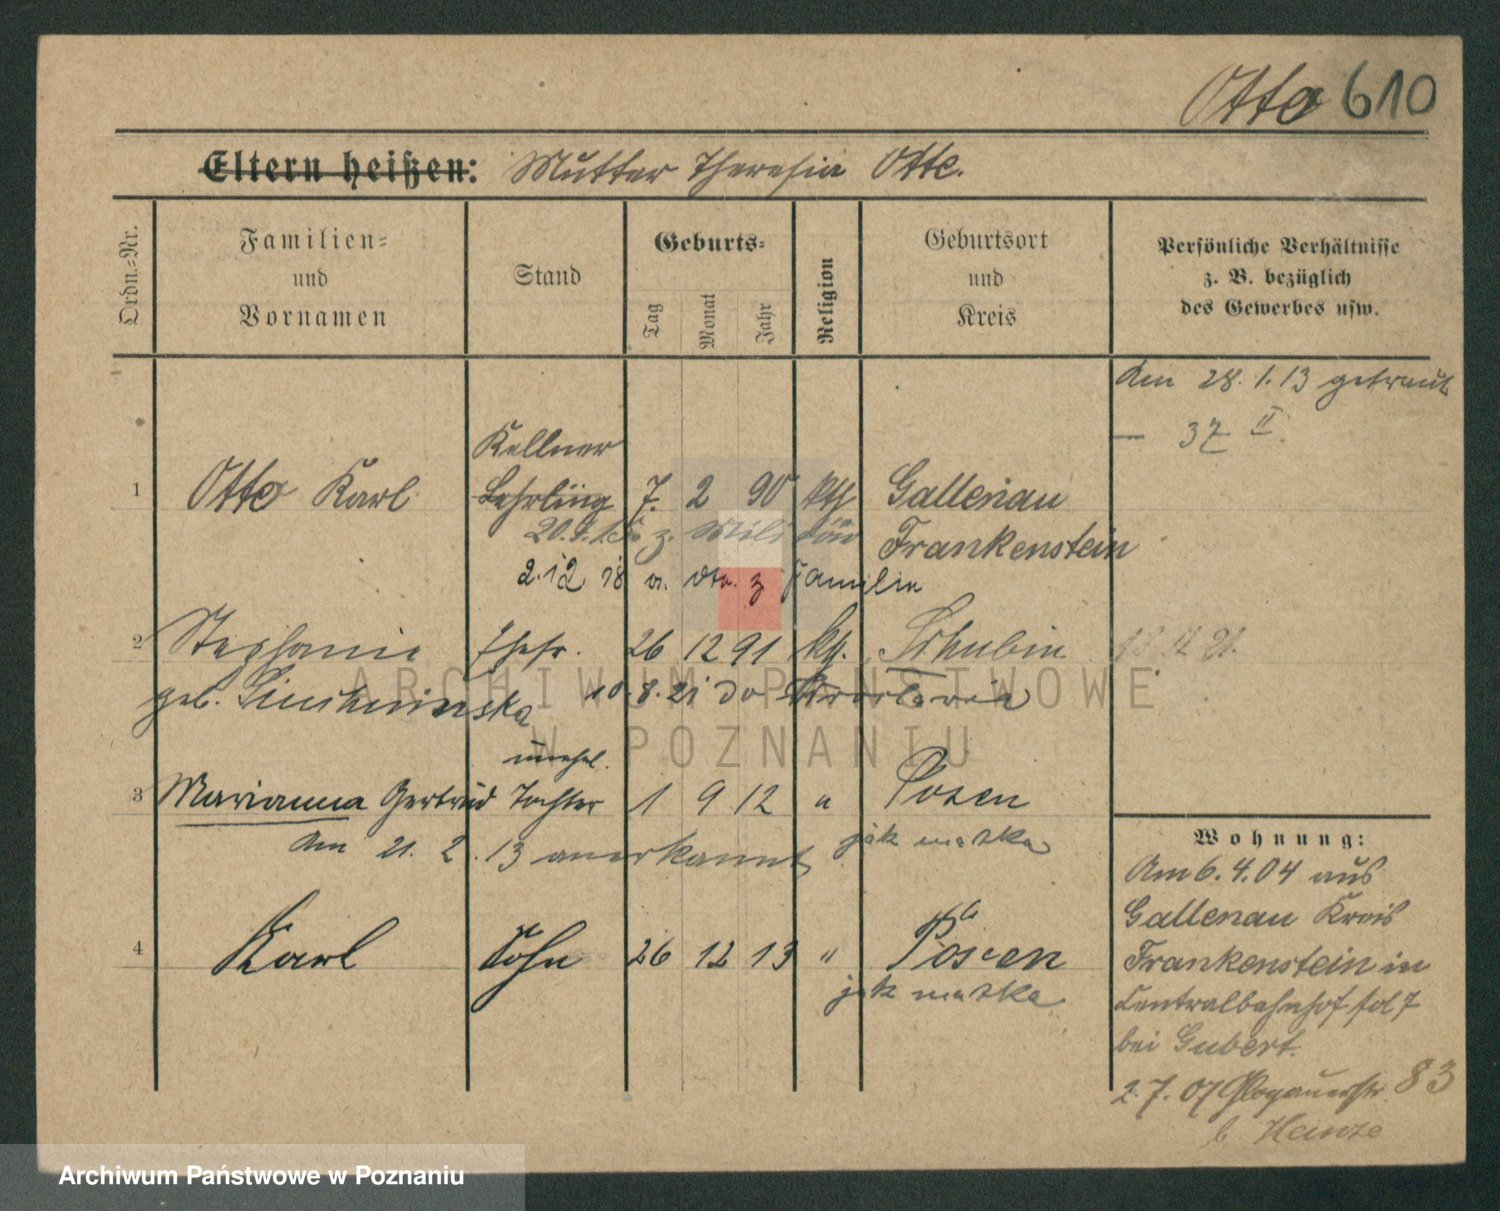 Otto 610
Eltern heißen: Mutter Theresia Otte.
Ordn.-Nr.
Familien- und Vornamen
Stand
Geburts-
Tag
Monat
Jahr
Religion
Geburtsort und Kreis
Persönliche Verhältnisse
z. B. bezüglich
des Gewerbes usw.
Am 28.1.13 getraut
— 37 II.
Kellner
1 Otto Karl Lehrling 7. 2 90 kth Gallenau
Frankenstein
20. z. Militär
2.12 18 v. z Familie
2 Stephanie Ehefr. 26 12 91 kg. Schubin
geb.
10.8.21 do
unehel.
3 Marianna Gertrud Tochter 1 9 12 " Posen
Am 21.2.13 anerkannt jak matka
4 Karl Sohn 26 12 13 " Posen
jak matka
Wohnung:
Am 6.4.04 aus
Gallenau Kreis
Frankenstein in
Centralbahnhof 7
bei Gubert.
2.7.07 Glogauerstr. 83
b Heinze
ARCHIWUM PAŃSTWOWE
W POZNANIU
Archiwum Państwowe w Poznaniu